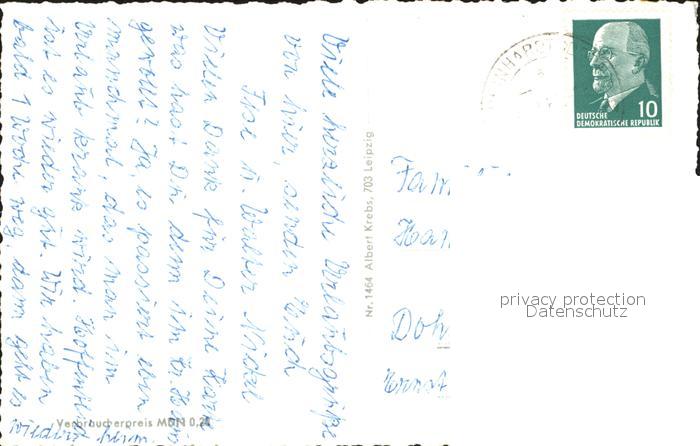 Viele herzliche Urlaubsgrüße
von hier, senden Euch
Ilse u. Walter Nickel
Vielen Dank für Deine Karte
was hast Du denn im Kr. Haus
gewollt? Ja, es passiert eben
manchmal, das man im
Urlaub krank wird. Hoffentlich
ist es wieder gut. Wir haben
bald 1 Woche weg, dann geht es
wieder heim
Verbraucherpreis MDN 0,20
Nr. 1464 Albert Krebs, 703 Leipzig
DEUTSCHE
DEMOKRATISCHE REPUBLIK
10
Fam
Han
Doh
Ernst
privacy protection
Datenschutz